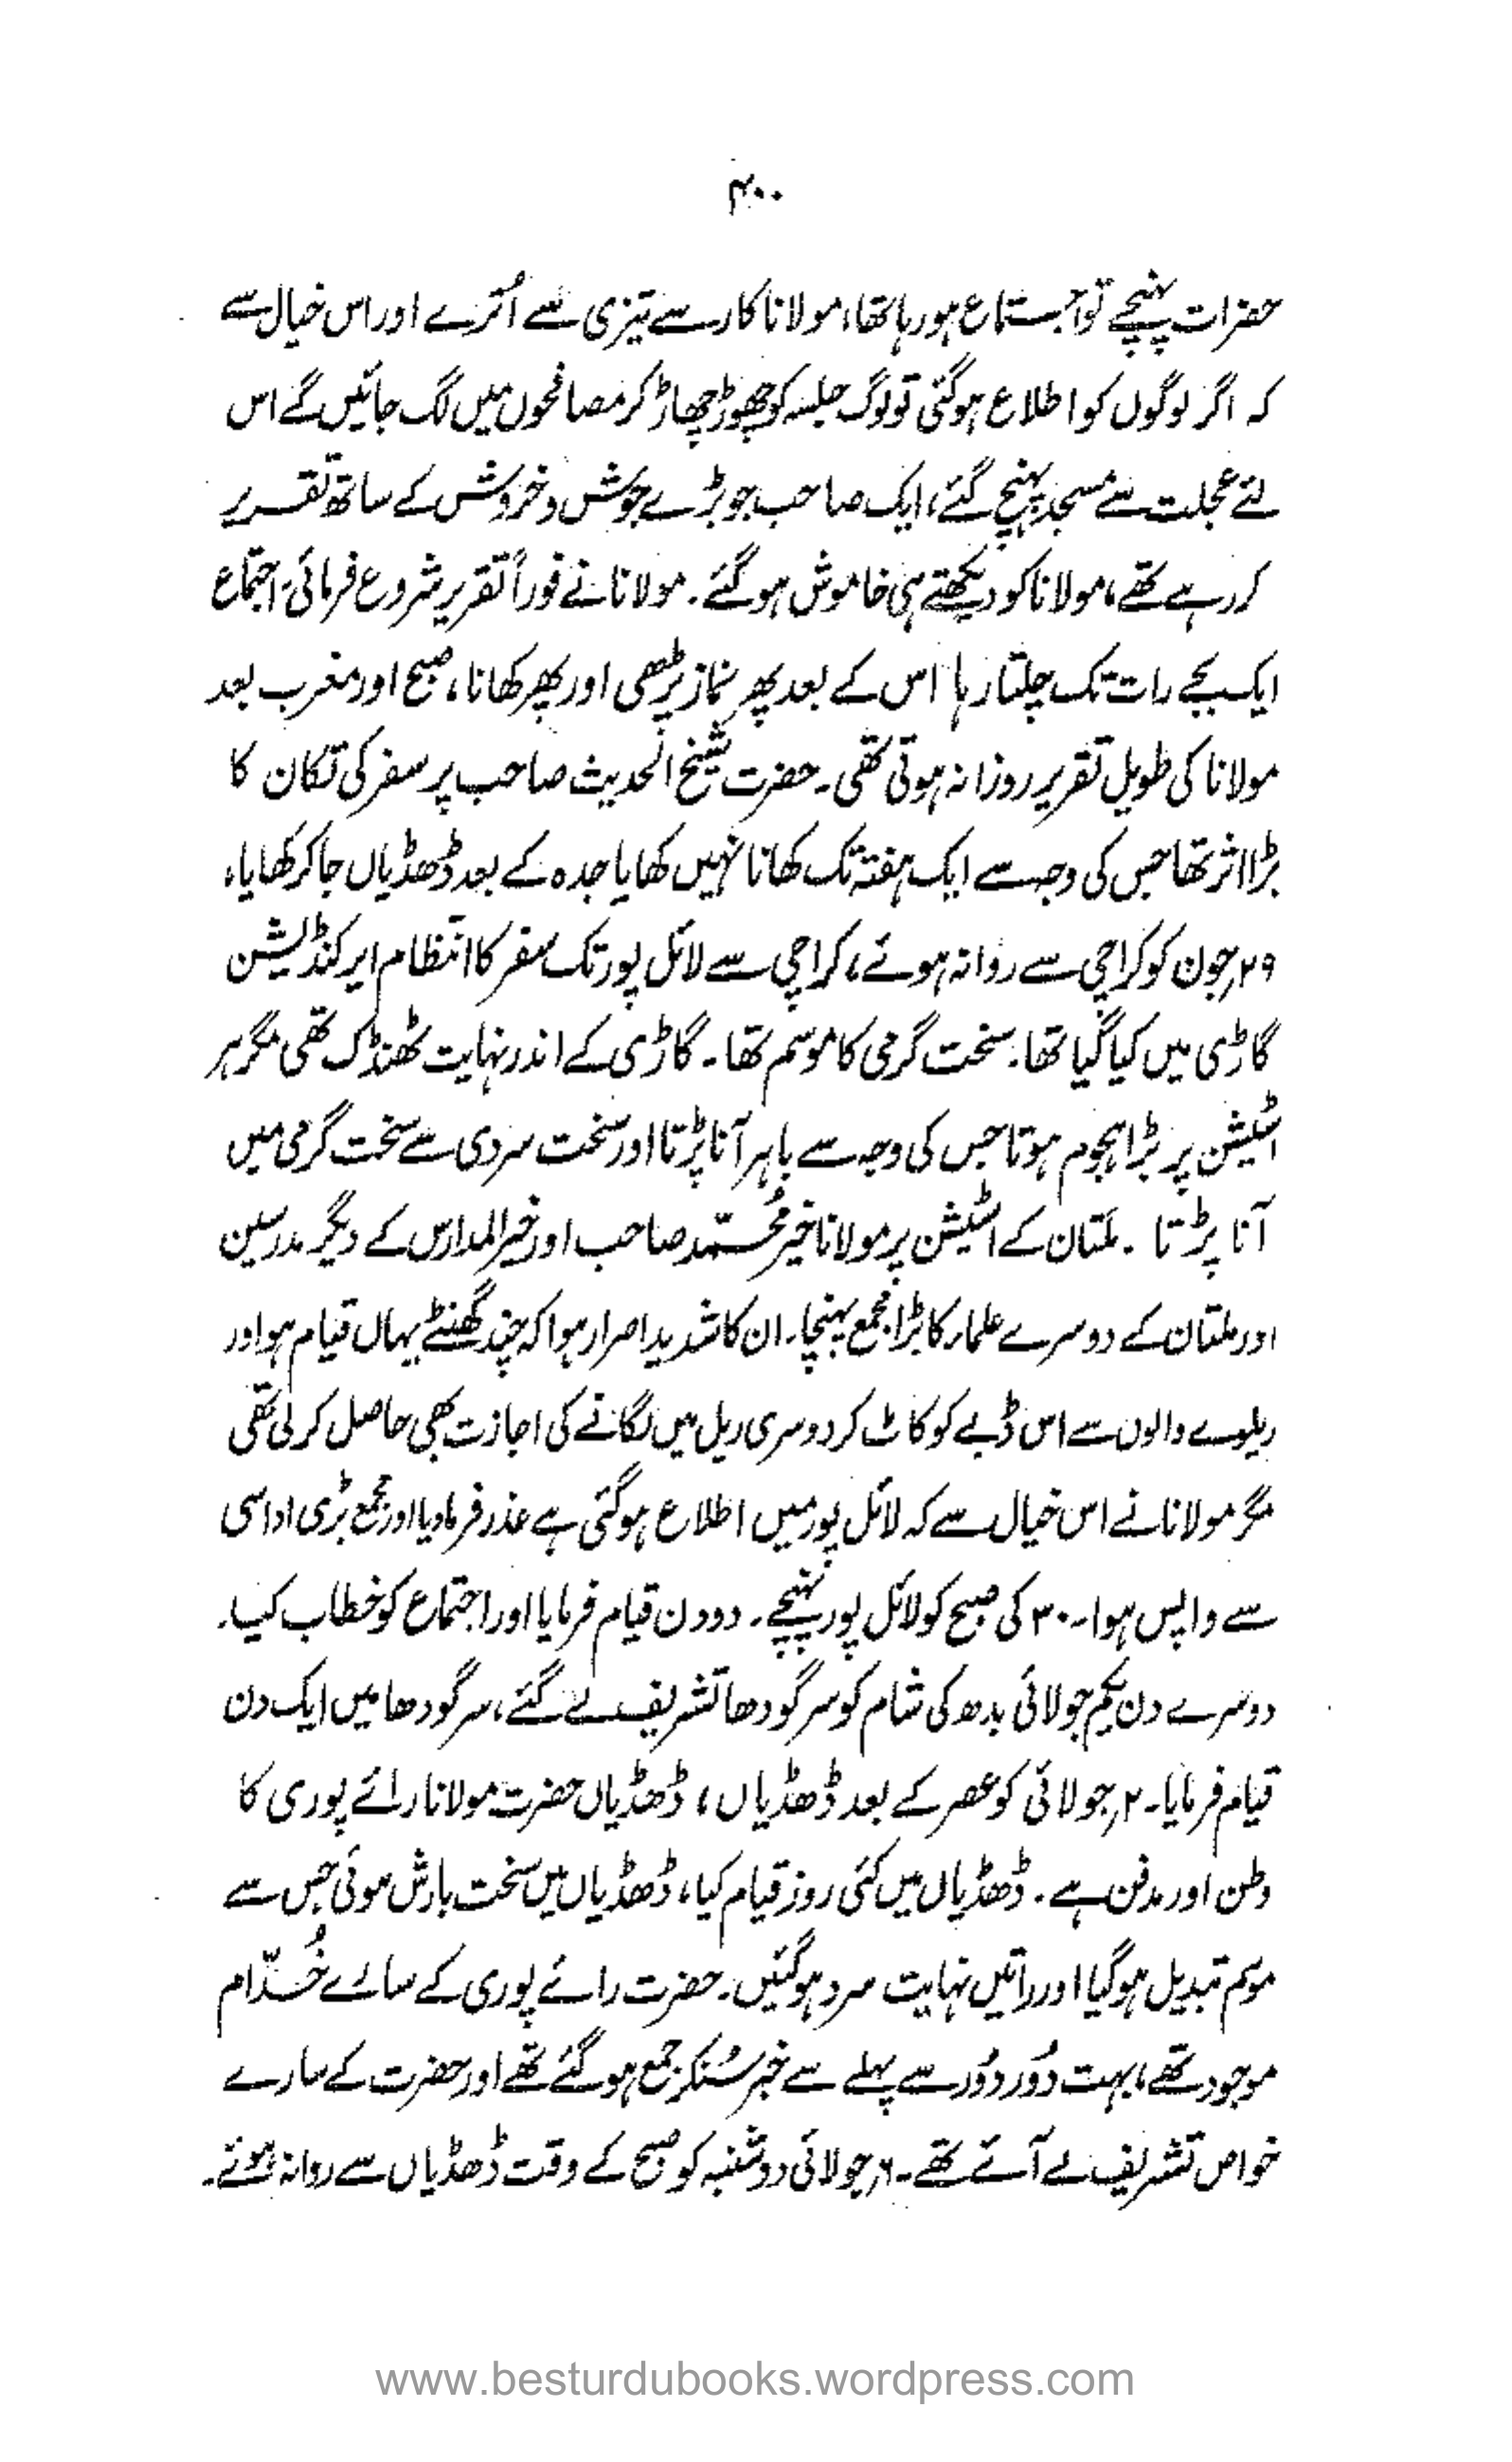 ۴۰۰
حضرات پہنچے تو اجتماع ہو رہا تھا، مولانا کار سے تیزی سے اُترے اور اس خیال سے
کہ اگر لوگوں کو اطلاع ہو گئی تو لوگ جلسہ کو چھوڑ چھاڑ کر مصافحوں میں لگ جائیں گے اس
لئے عجلت سے مسجد پہنچ گئے، ایک صاحب جو بڑے جوش و خروش کے ساتھ تقریر
کر رہے تھے، مولانا کو دیکھتے ہی خاموش ہو گئے۔ مولانا نے فوراً تقریر شروع فرمائی، اجتماع
ایک بجے رات تک چلتا رہا اس کے بعد پھر نماز پڑھی اور پھر کھانا، صبح اور مغرب بعد
مولانا کی طویل تقریر روزانہ ہوتی تھی۔ حضرت شیخ الحدیث صاحب پر سفر کی تکان کا
بڑا اثر تھا جس کی وجہ سے ایک ہفتہ تک کھانا نہیں کھایا جدہ کے بعد ڈھڈیاں جا کر کھایا،
۲۹؍جون کو کراچی سے روانہ ہوئے، کراچی سے لائل پور تک سفر کا انتظام ایرکنڈیشن
گاڑی میں کیا گیا تھا۔ سخت گرمی کا موسم تھا۔ گاڑی کے اندر نہایت ٹھنڈک تھی مگر ہر
اسٹیشن پر بڑا ہجوم ہوتا جس کی وجہ سے باہر آنا پڑتا اور سخت سردی سے سخت گرمی میں
آنا پڑتا۔ ملتان کے اسٹیشن پر مولانا خیر محمّد صاحب اور خیر المدارس کے دیگر مدرسین
اور ملتان کے دوسرے علماء کا بڑا مجمع پہنچا۔ ان کا شدید اصرار ہوا کہ چند گھنٹے یہاں قیام ہو اور
ریلوے والوں سے اس ڈبے کو کاٹ کر دوسری ریل میں لگانے کی اجازت بھی حاصل کر لی تھی
مگر مولانا نے اس خیال سے کہ لائل پور میں اطلاع ہو گئی ہے عذر فرما دیا اور مجمع بڑی اداسی
سے واپس ہوا۔ ۳۰ کی صبح کو لائل پور پہنچے۔ دو دن قیام فرمایا اور اجتماع کو خطاب کیا۔
دوسرے دن یکم جولائی بدھ کی شام کو سرگودھا تشریف لے گئے، سرگودھا میں ایک دن
قیام فرمایا۔ ۲؍جولائی کو عصر کے بعد ڈھڈیاں، ڈھڈیاں حضرت مولانا رائے پوری کا
وطن اور مدفن ہے۔ ڈھڈیاں میں کئی روز قیام کیا، ڈھڈیاں میں سخت بارش ہوئی جس سے
موسم تبدیل ہو گیا اور راتیں نہایت سرد ہو گئیں۔ حضرت رائے پوری کے سارے خُدّام
موجود تھے، بہت دُور دُور سے پہلے سے خبر سُنکر جمع ہو گئے تھے اور حضرت کے سارے
خواص تشریف لے آئے تھے۔ ۶؍جولائی دوشنبہ کو صبح کے وقت ڈھڈیاں سے روانہ ہوئے۔
www.besturdubooks.wordpress.com